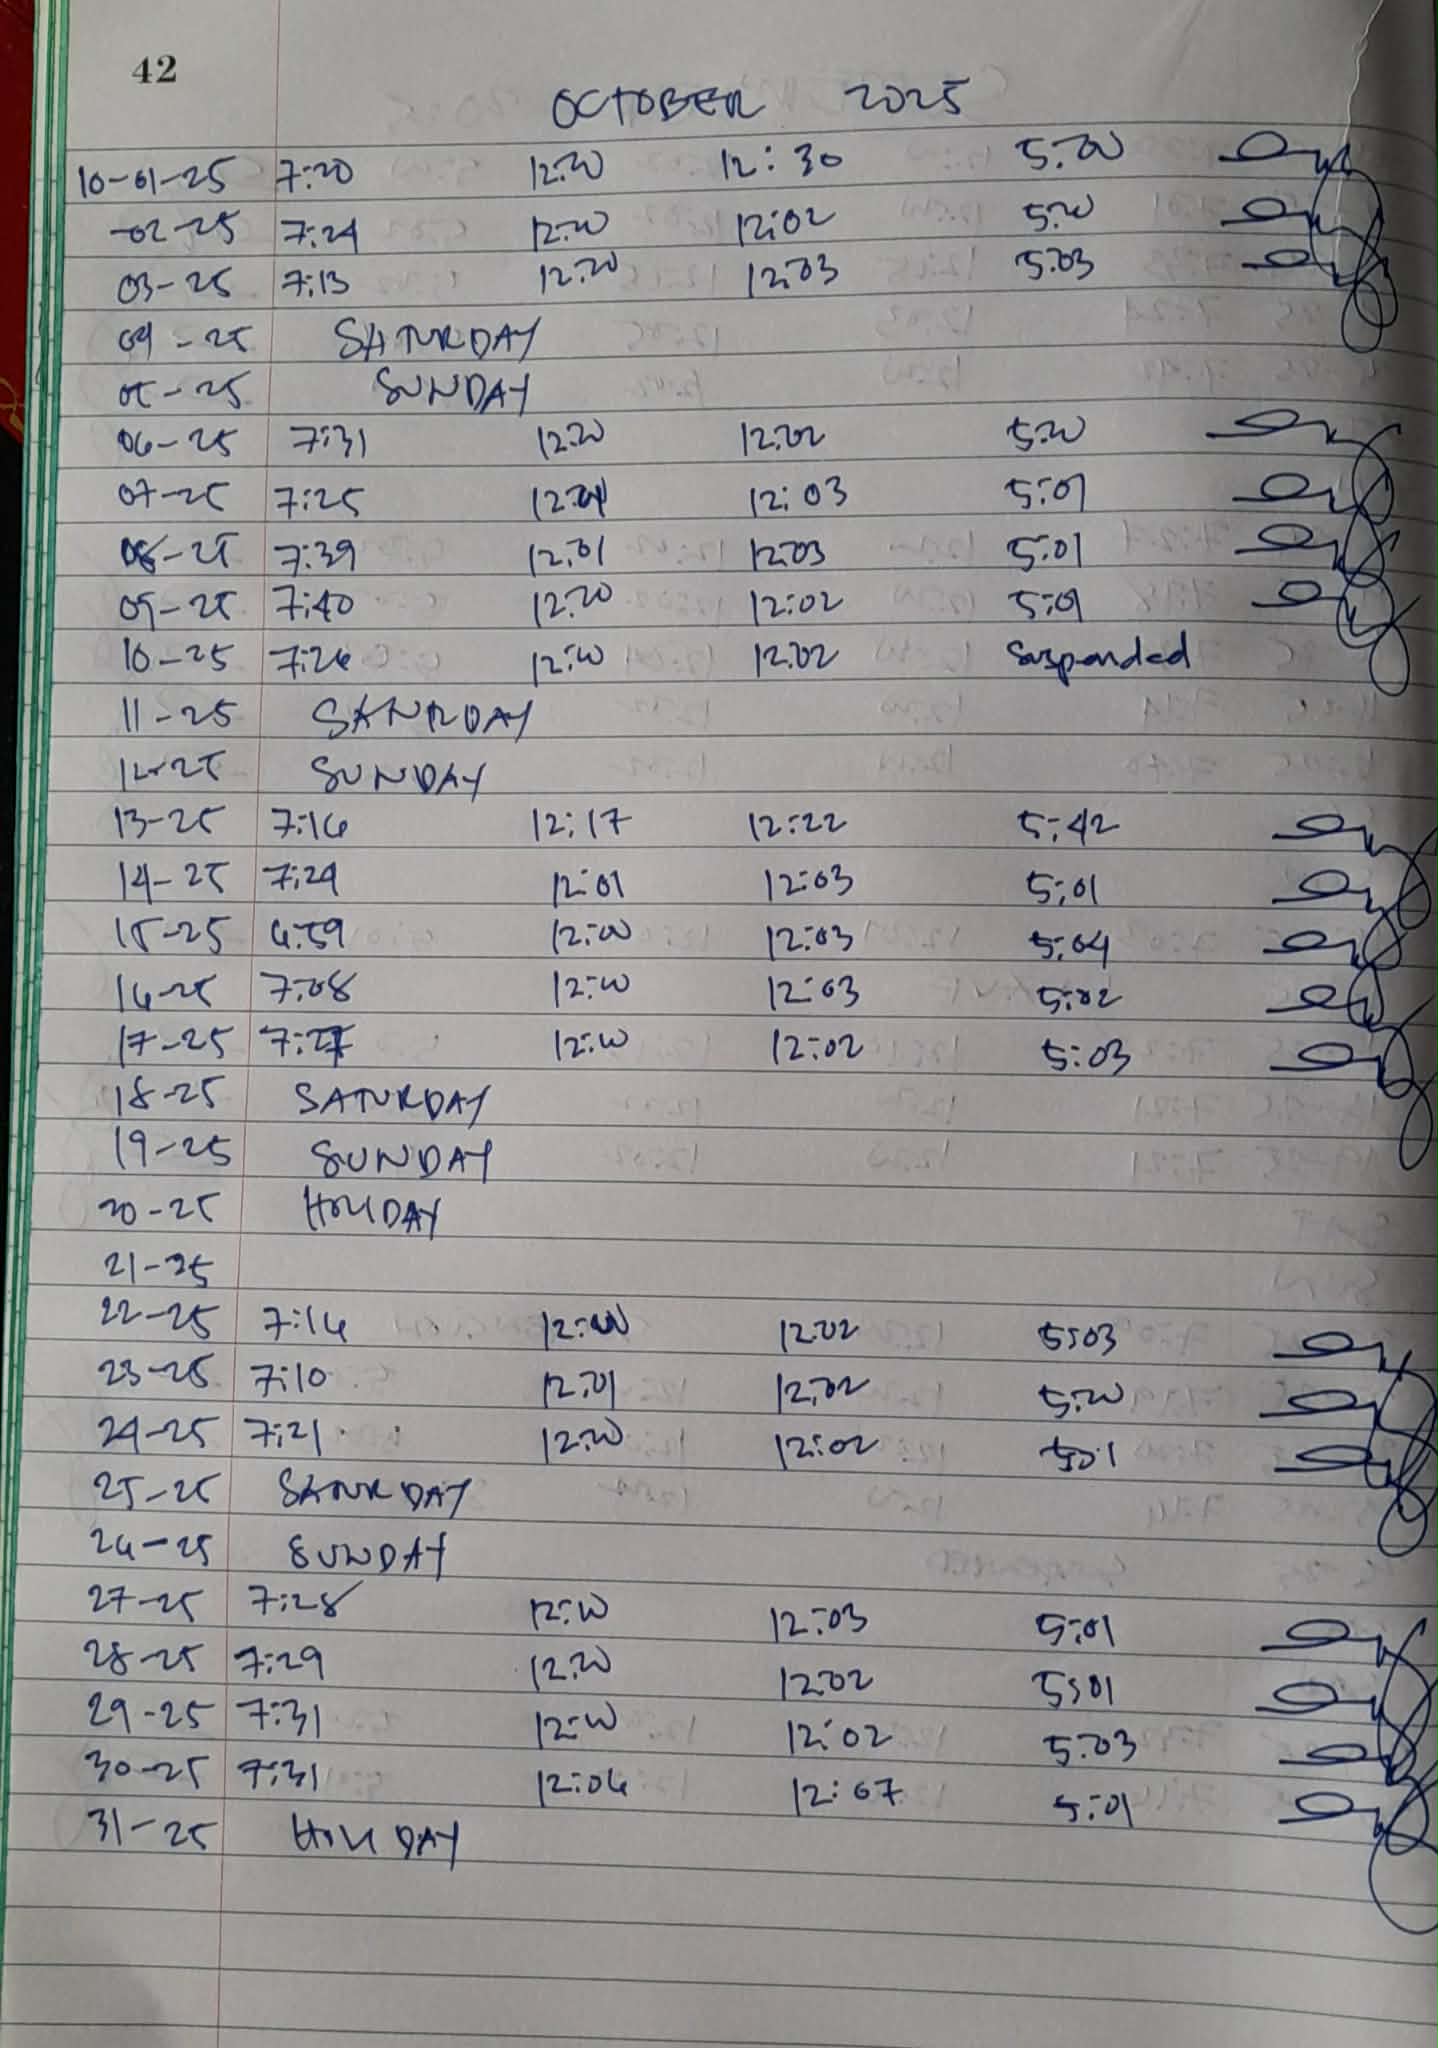 42
OCTOBER 2025
10-01-25 7:20 12:00 12:30 5:00
-02-25 7:24 12:00 12:02 5:00
03-25 7:13 12:00 12:03 5:03
04-25 SATURDAY
05-25 SUNDAY
06-25 7:31 12:00 12:02 5:00
07-25 7:25 12:01 12:03 5:01
08-25 7:39 12:01 12:03 5:01
09-25 7:40 12:00 12:02 5:01
10-25 7:26 12:00 12:02 Suspended
11-25 SATURDAY
12-25 SUNDAY
13-25 7:16 12:17 12:22 5:42
14-25 7:24 12:01 12:03 5:01
15-25 6:59 12:00 12:03 5:04
16-25 7:08 12:00 12:03 5:02
17-25 7:27 12:00 12:02 5:03
18-25 SATURDAY
19-25 SUNDAY
20-25 HOLIDAY
21-25
22-25 7:16 12:00 12:02 5:03
23-25 7:10 12:01 12:02 5:00
24-25 7:21 12:00 12:02 5:01
25-25 SATURDAY
26-25 SUNDAY
27-25 7:28 12:00 12:03 5:01
28-25 7:29 12:00 12:02 5:01
29-25 7:31 12:00 12:02 5:03
30-25 7:31 12:06 12:07 5:01
31-25 HOLIDAY